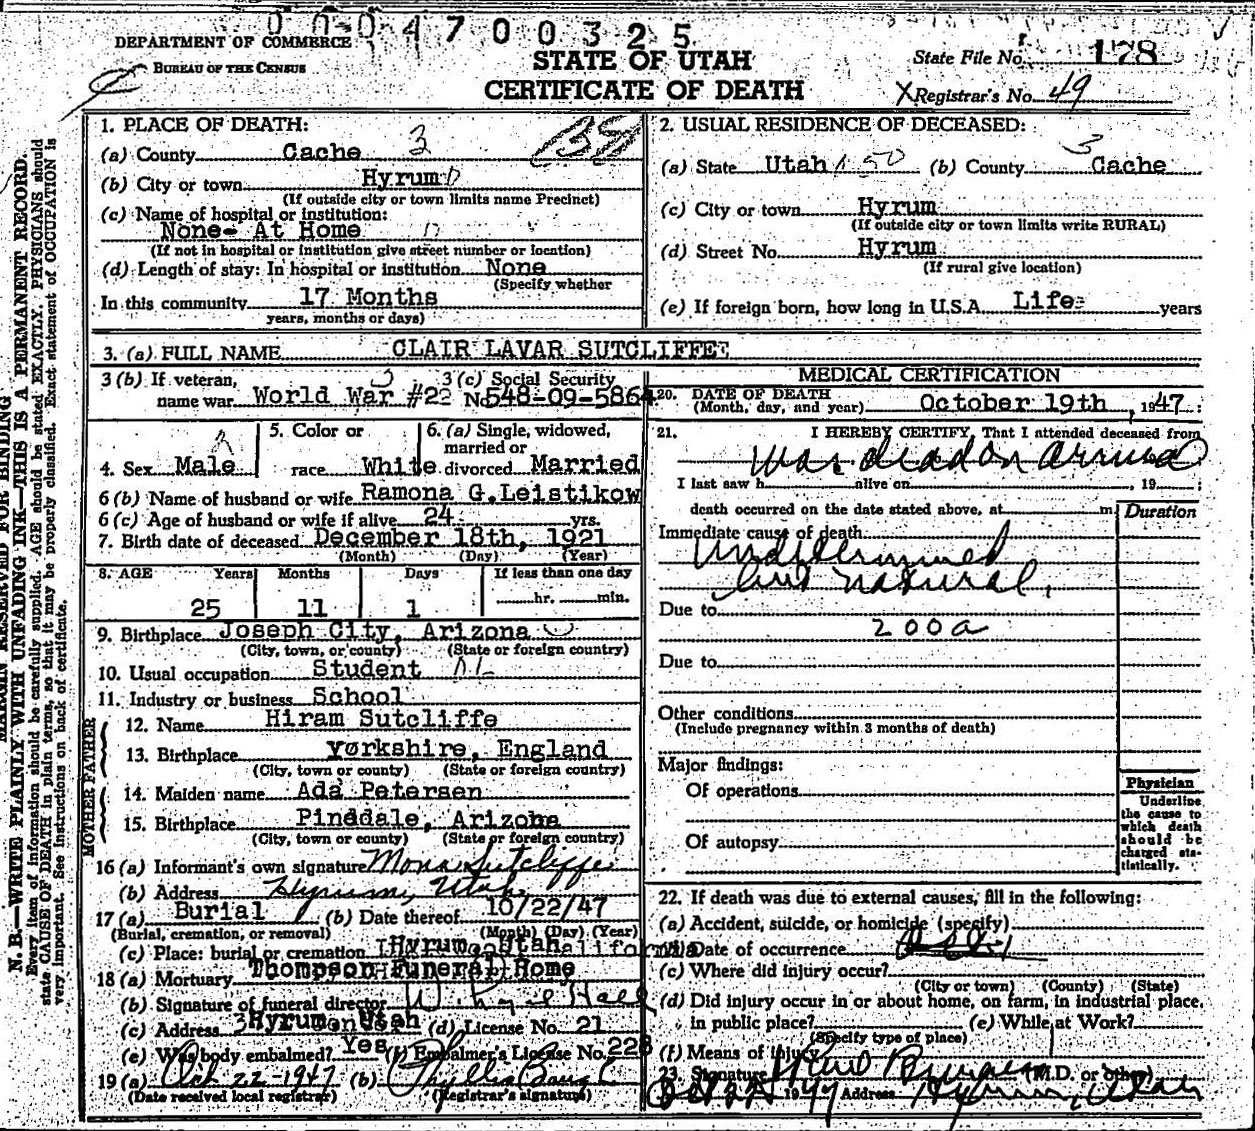 0004700325
DEPARTMENT OF COMMERCE
BUREAU OF THE CENSUS
STATE OF UTAH
CERTIFICATE OF DEATH
State File No. 178
X Registrar's No. 49
MARGIN RESERVED FOR BINDING
N. B.—WRITE PLAINLY WITH UNFADING INK—THIS IS A PERMANENT RECORD.
Every item of information should be carefully supplied. AGE should be stated EXACTLY. PHYSICIANS should
state CAUSE OF DEATH in plain terms, so that it may be properly classified. Exact statement of OCCUPATION is
very important. See instructions on back of certificate.
1. PLACE OF DEATH:
(a) County Cache 3
(b) City or town Hyrum
(If outside city or town limits name Precinct)
(c) Name of hospital or institution:
None- At Home
(If not in hospital or institution give street number or location)
(d) Length of stay: In hospital or institution None
(Specify whether
In this community 17 Months
years, months or days)
2. USUAL RESIDENCE OF DECEASED:
3
(a) State Utah 50 (b) County Cache
(c) City or town Hyrum
(If outside city or town limits write RURAL)
(d) Street No. Hyrum
(If rural give location)
(e) If foreign born, how long in U.S.A. Life years
3. (a) FULL NAME CLAIR LAVAR SUTCLIFFE
3 (b) If veteran,
name war World War #2
3 (c) Social Security
No 548-09-5864
4. Sex Male
5. Color or
race White
6. (a) Single, widowed,
married or
divorced Married
6 (b) Name of husband or wife Ramona G.Leistikow
6 (c) Age of husband or wife if alive 24 yrs.
7. Birth date of deceased December 18th, 1921
(Month) (Day) (Year)
8. AGE Years Months Days If less than one day
25 11 1 hr. min.
9. Birthplace Joseph City, Arizona
(City, town, or county) (State or foreign country)
10. Usual occupation Student
11. Industry or business School
FATHER
12. Name Hiram Sutcliffe
13. Birthplace Yorkshire, England
(City, town or county) (State or foreign country)
MOTHER
14. Maiden name Ada Petersen
15. Birthplace Pinedale, Arizona
(City, town or county) (State or foreign country)
16 (a) Informant's own signature Mona Sutcliffe
(b) Address Hyrum, Utah
17 (a) Burial (b) Date thereof 10/22/47
(Burial, cremation, or removal) (Month) (Day) (Year)
(c) Place: burial or cremation Hyrum, Utah
18 (a) Mortuary Thompson Funeral Home
(b) Signature of funeral director Hall
(c) Address Hyrum Utah (d) License No. 21
(e) Was body embalmed? Yes (f) Embalmer's License No. 228
19 (a) Oct 22-1947 (b) Phyllis
(Date received local registrar) (Registrar's signature)
MEDICAL CERTIFICATION
20. DATE OF DEATH
(Month, day, and year) October 19th, 1947
21. I HEREBY CERTIFY, That I attended deceased from
was dead on arrival
I last saw h alive on , 19 ;
death occurred on the date stated above, at m. Duration
Immediate cause of death
Undetermined
but natural,
Due to
200a
Due to
Other conditions
(Include pregnancy within 3 months of death)
Major findings:
Of operations
Of autopsy
Physician
Underline
the cause to
which death
should be
charged sta-
tistically.
22. If death was due to external causes, fill in the following:
(a) Accident, suicide, or homicide (specify)
(b) Date of occurrence
(c) Where did injury occur?
(City or town) (County) (State)
(d) Did injury occur in or about home, on farm, in industrial place,
in public place? (e) While at Work?
(Specify type of place)
(f) Means of injury
23. Signature (M.D. or other)
1947 Address Hyrum, Utah